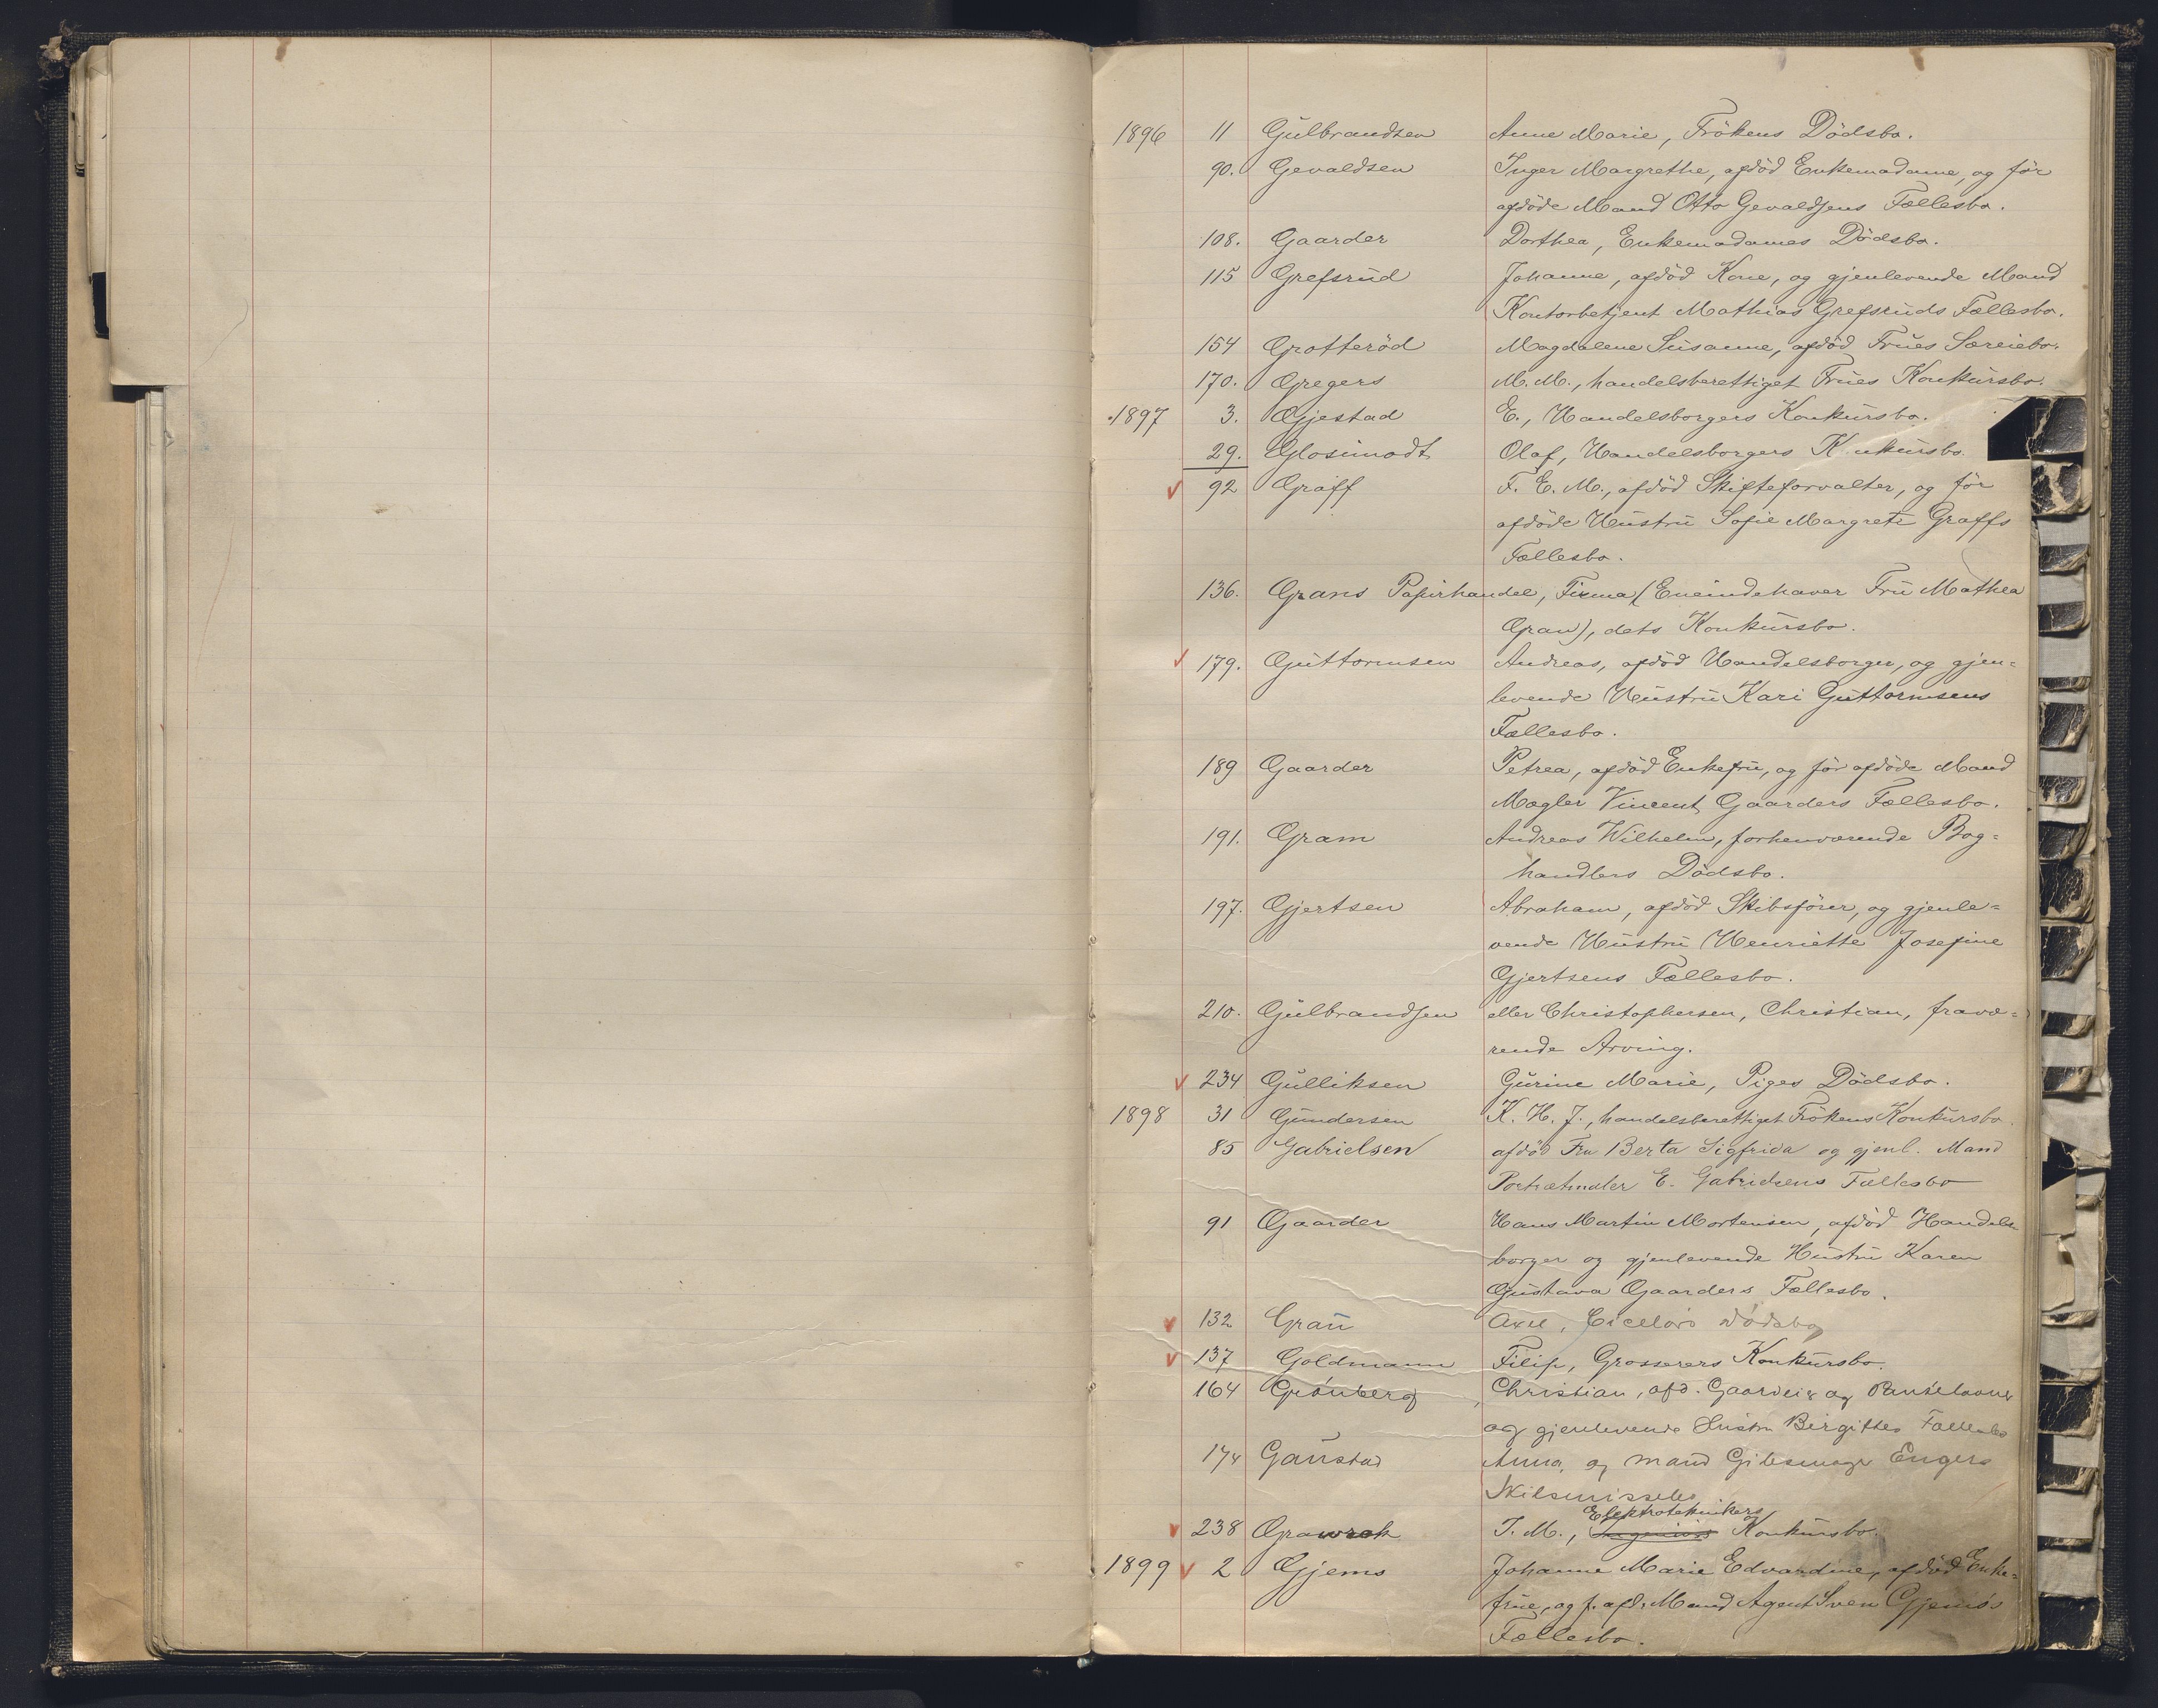 1896 11 Gulbrandsen Anne Marie, Frökens Dödsbo.
90. Gevaldsen Inger Margrethe, afdöd Enkemadame, og før
afdöde Mand Otto Gevaldsens Fællesbo.
108. Gaarder Dorthea, Enkemadames Dödsbo.
115 Grefsrud Johanne, afdöd Kone, og gjenlevende Mand
Kontorbetjent Mathias Grefsruds Fællesbo.
154 Grotteröd Magdalene Susanne, afdöd Frues Særeiebo.
170. Gregers M. M., handelsberettiget Frues Konkursbo.
1897 3. Gjestad E., Handelsborgers Konkursbo.
29. Glosimodt Olaf, Handelsborgers K nkursbo.
92 Graff F. E. M., afdöd Skifteforvalter, og för
afdöde Hustru Sofie Margrete Graffs
Fællesbo.
136. Grans Papirhandel, Firma (Eneindehaver Fru Mathea
Gran), dets Konkursbo.
179. Guttormsen Andreas, afdöd Handelsborger, og gjen=
levende Hustru Kari Guttormsens
Fællesbo.
189 Gaarder Petrea, afdöd Enkefru, og för afdöde Mand
Mægler Vincent Gaarders Fællesbo.
191. Gram Andreas Wilhelm, forhenværende Bog=
handlers Dödsbo.
197. Gjertsen Abraham, afdöd Skibsförer, og gjenle=
vende Hustru Henriette Josefine
Gjertsens Fællesbo.
210. Gulbrandsen eller Christophersen, Christian, fravæ=
rende Arving.
234 Gulliksen Gurine Marie, Piges Dödsbo.
1898 31 Gundersen K. H. J., handelsberettiget Frökens Konkursbo.
85 Gabrielsen afdöd Fru Berta Sigfrida og gjenl. Mand
Portrætmaler E. Gabrielsens Fællesbo
91 Gaarder Hans Martin Mortensen, afdöd Handels
borger og gjenlevende Hustru Karen
Gustava Gaarders Fællesbo.
132 Grau Axel, Ciselörs Dödsbo
137 Goldmann Filip, Grosserers Konkursbo.
164 Grönberg Christian, afd. Gaardeier og
og gjenlevende Hustru Birgittes Fællesbo
174 Gaustad Anna, og Mand Engers
Skilsmissebo
Elektroteknikers
238 Grawrok T. M., Ingeniörs Konkursbo.
1899 2 Gjems Johanne Marie Edvardine, afdöd Enke=
frue, og f. afd. Mand Agent Sven Gjems's
Fællesbo.